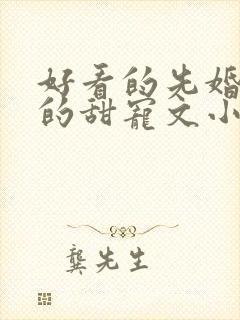 好看的先婚
的甜宠文小
龚先生